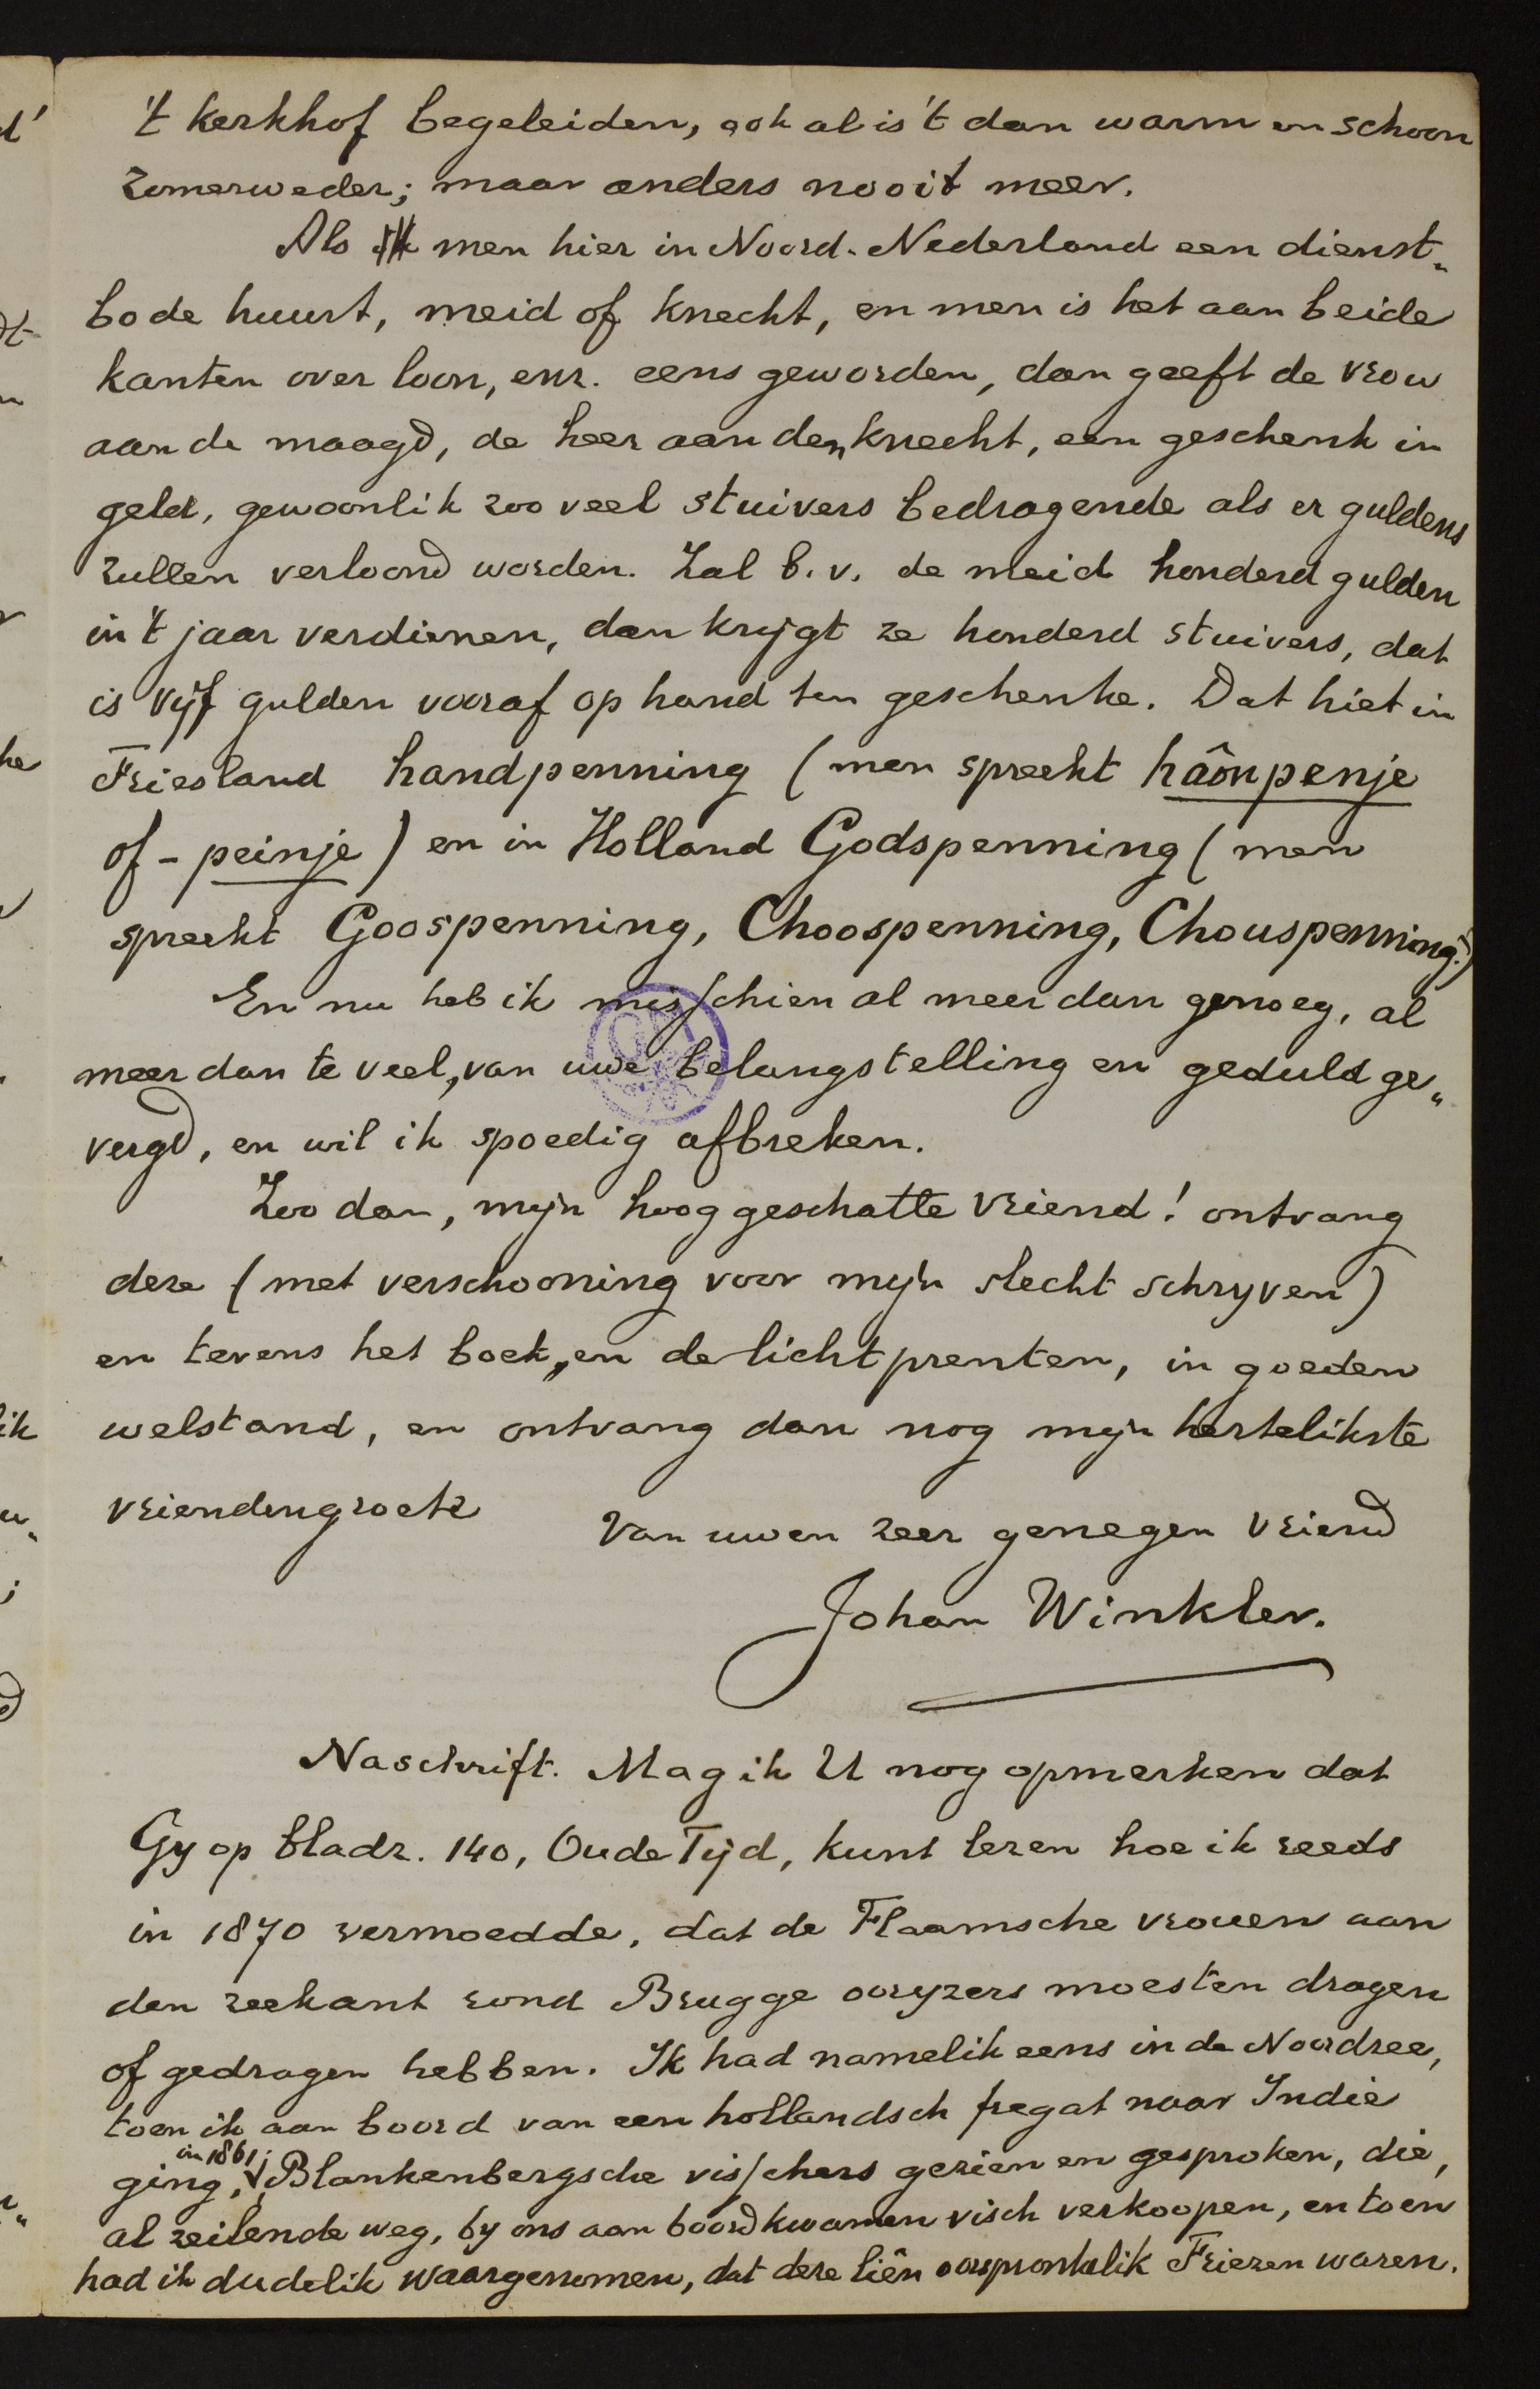 't kerkhof begeleiden, ook al is 't dan warm en schoon
zomerweder; maar anders nooit meer.
Als men hier in Noord-Nederland een dienst-
bode huurt, meid of knecht, en men is het aan beide
kanten over loon, enz. eens geworden, dan geeft de vrow
aan de maagd, de heer aan den knecht, een geschenk in
geld, gewoonlik zoo veel stuivers bedragende als er guldens
zullen verloond worden. Zal b.v. de meid honderd gulden
in 't jaar verdienen, dan krygt ze honderd stuivers, dat
is vyf gulden vooraf op hand ten geschenke. Dat hiet in
Friesland handpenning (men spreekt hâonpenje
of -peinje) en in Holland Godspenning (men
spreekt Goospenning, Choospenning, Chouspenning.)
En nu heb ik misschien al meer dan genoeg, al
meer dan te veel, van uwe belangstelling en geduld ge-
vergd, en wil ik spoedig afbreken.
Zoo dan, myn hooggeschatte vriend! ontvang
deze (met verschooning voor myn slecht schryven)
en tevens het boek, en de lichtprenten, in goeden
welstand, en ontvang dan nog myn hertelikste
vriendengroete
van uwen zeer genegen vriend
Johan Winkler.
Naschrift. Mag ik U nog opmerken dat
Gy op bladz. 140, Oude Tyd, kunt lezen hoe ik reeds
in 1870 vermoedde, dat de Flaamsche vrouen aan
den zeekant rond Brugge ooryzers moesten dragen
of gedragen hebben. Ik had namelik eens in de Noordzee,
toen ik aan boord van een hollandsch fregat naar Indië
in 1861;
ging, Blankenbergsche visschers gezien en gesproken, die,
al zeilende weg, by ons aan boord kwamen visch verkoopen, en toen
had ik dudelik waargenomen, dat deze liên oorspronkelik Friezen waren.